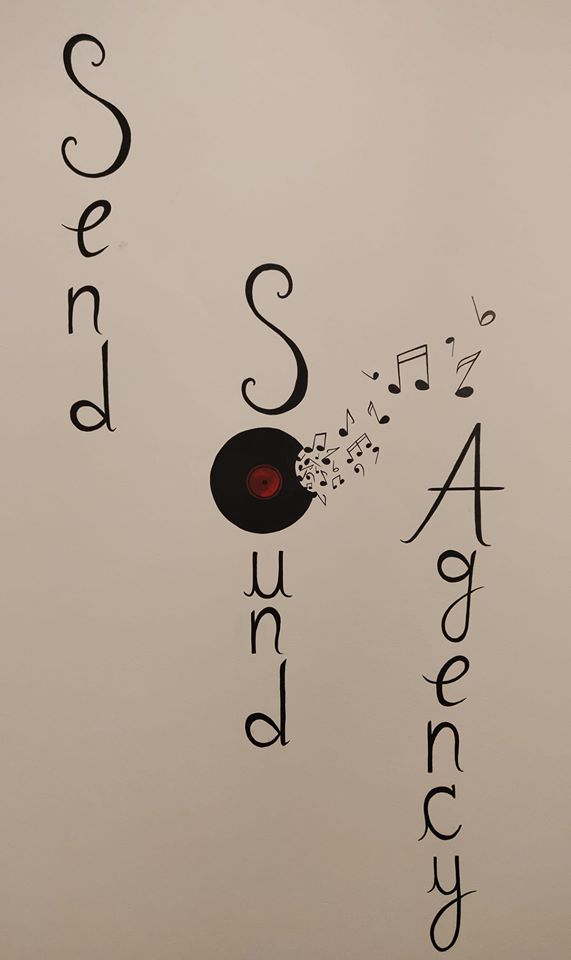 Send
Sound
Agency